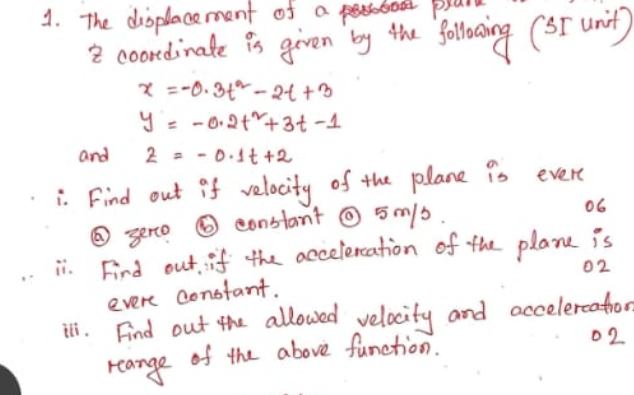 1. The displacement of a
z coordinate is given by the following (SI unit)
x = -0.3t² - 2t + 3
y = -0.2t² + 3t - 1
and z = -0.1t + 2
i. Find out if velocity of the plane is ever
ⓐ zero ⓑ constant ⓒ 5 m/s. 06
ii. Find out, if the acceleration of the plane is
ever constant. 02
iii. Find out the allowed velocity and acceleration
range of the above function. 02